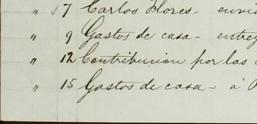 " 7 Carlos Flores - envi
" 9 Gastos de casa - entreg
" 12 Contribucion por las
" 15 Gastos de casa - á